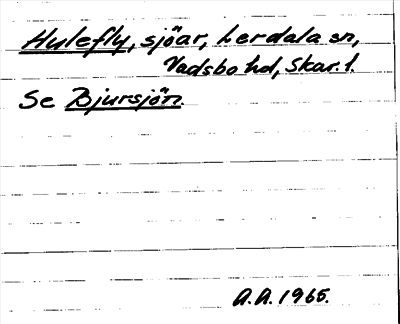 Hulefly, sjöar, Lerdala sn,
Vadsbo hd, Skar. l.
Se Bjursjön.
A.A. 1965.